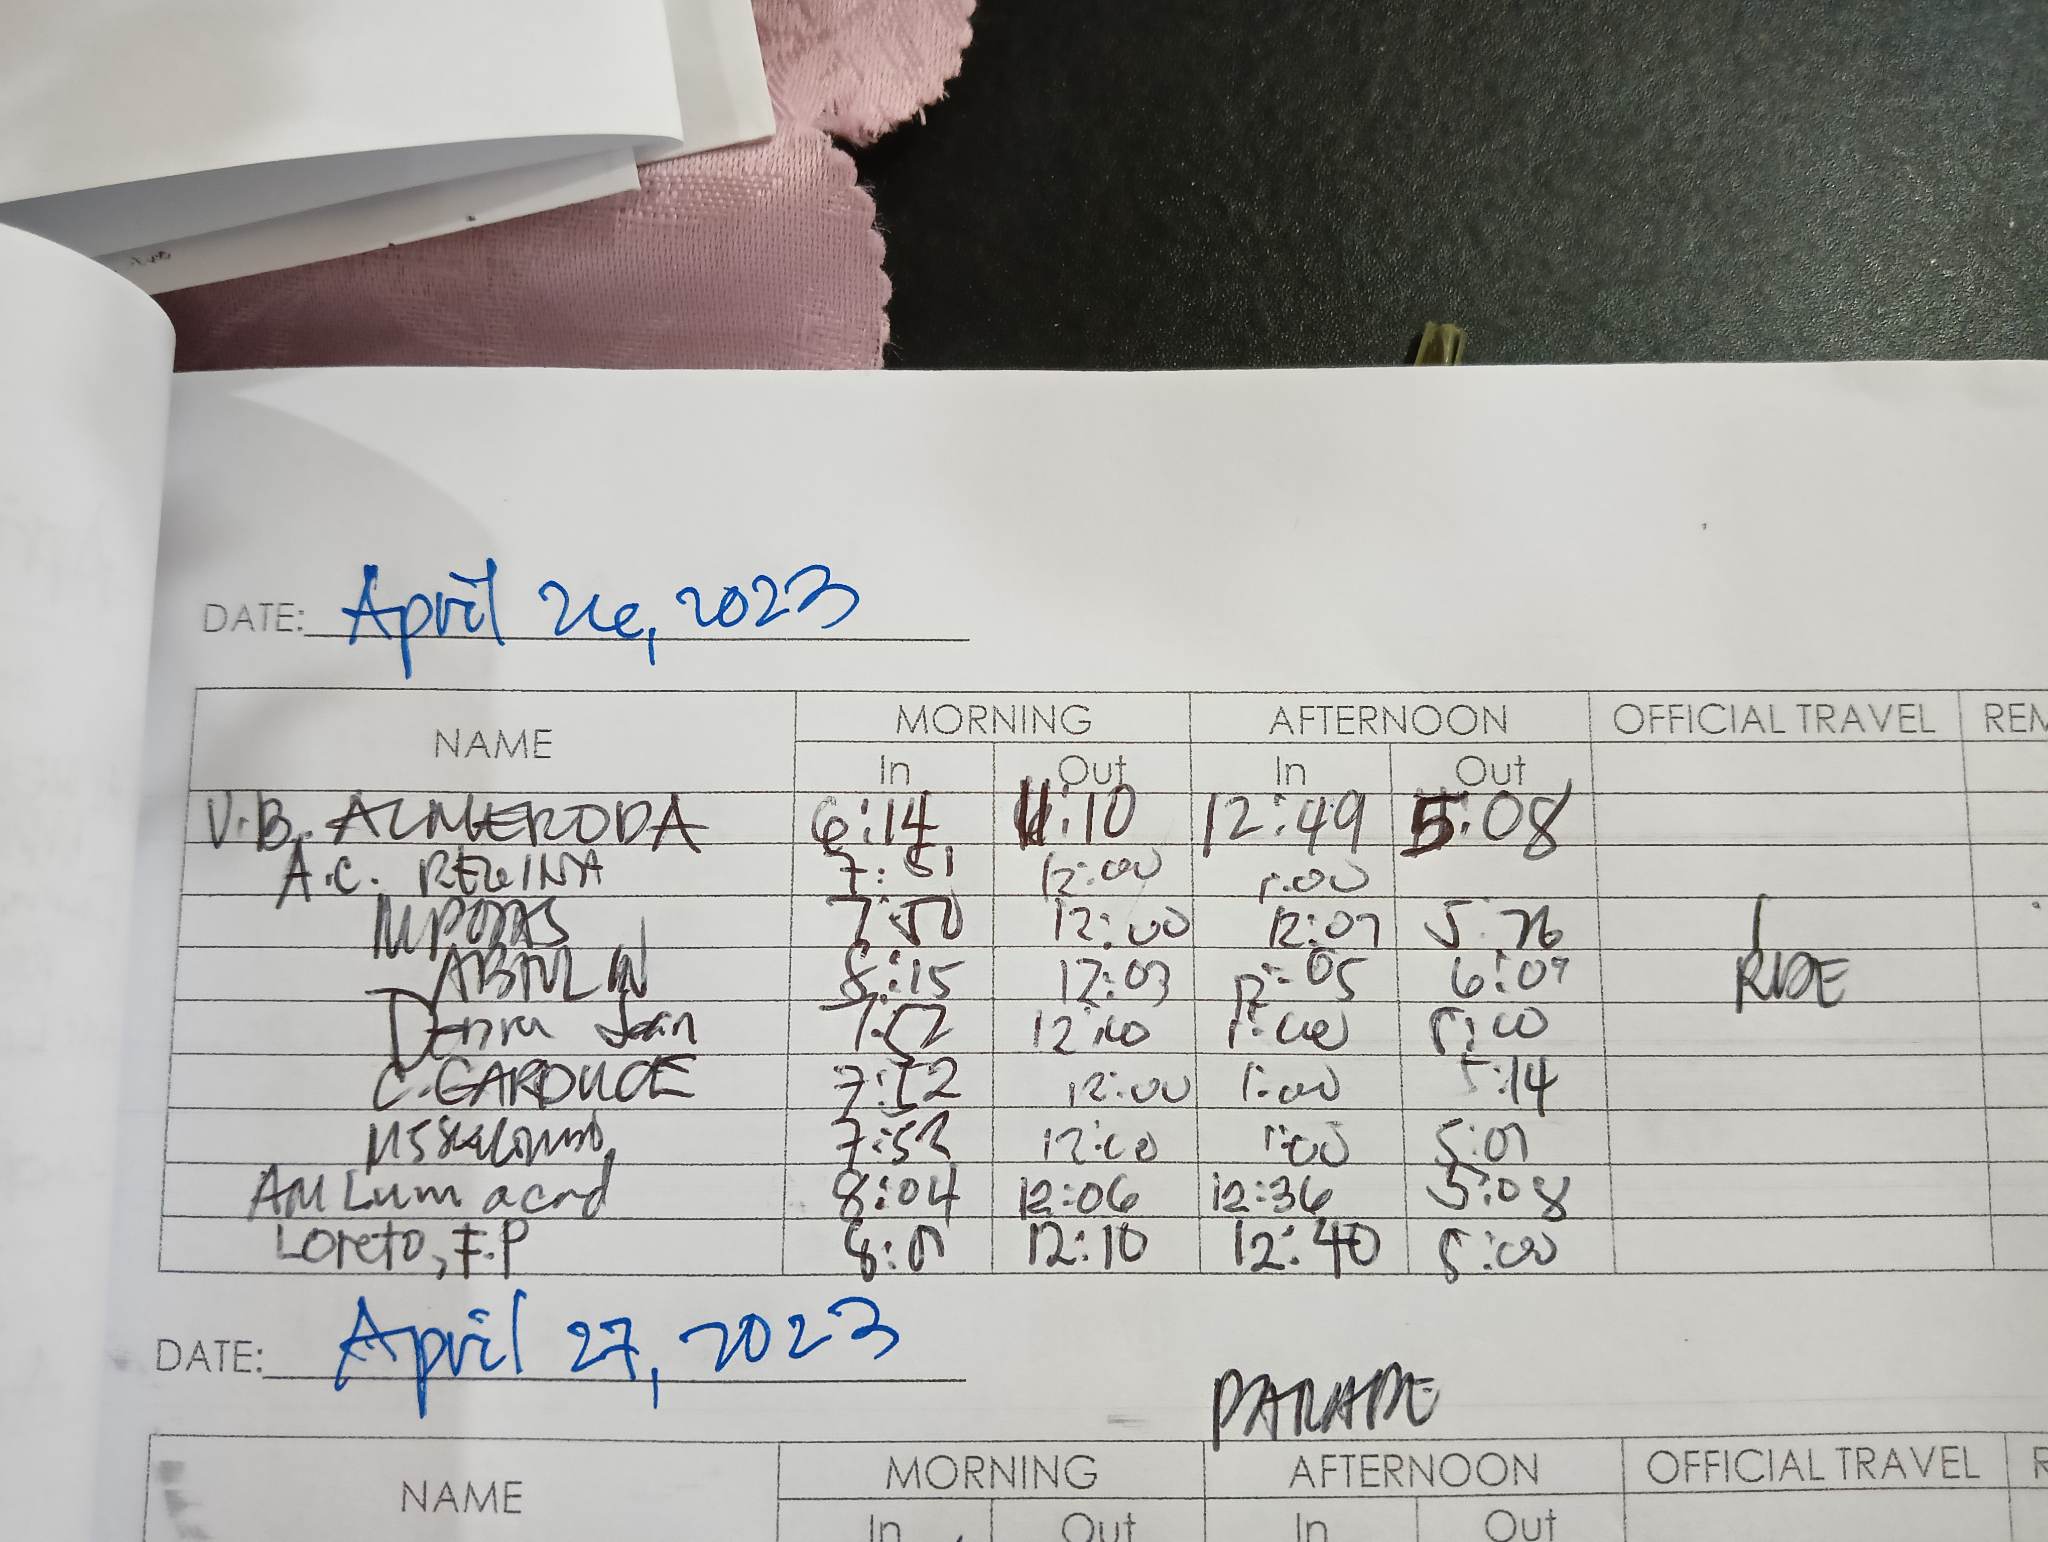 DATE: April 26, 2023
NAME MORNING AFTERNOON OFFICIAL TRAVEL REM
In Out In Out
V.B. ALMERODA 6:14 11:10 12:49 5:08
A.C. REGINA 7:51 12:00 1:00
7:50 12:00 12:07 5:26
8:15 12:03 12:05 6:07 RIDE
Jean 7:52 12:00 1:00 5:00
C. GARDUCE 7:52 12:00 1:00 5:14
7:53 12:00 1:00 5:07
AM Lumacad 8:04 12:06 12:36 5:08
Loreto, F.P 12:10 12:40 5:00
DATE: April 27, 2023
PARADE
NAME MORNING AFTERNOON OFFICIAL TRAVEL R
In Out In Out